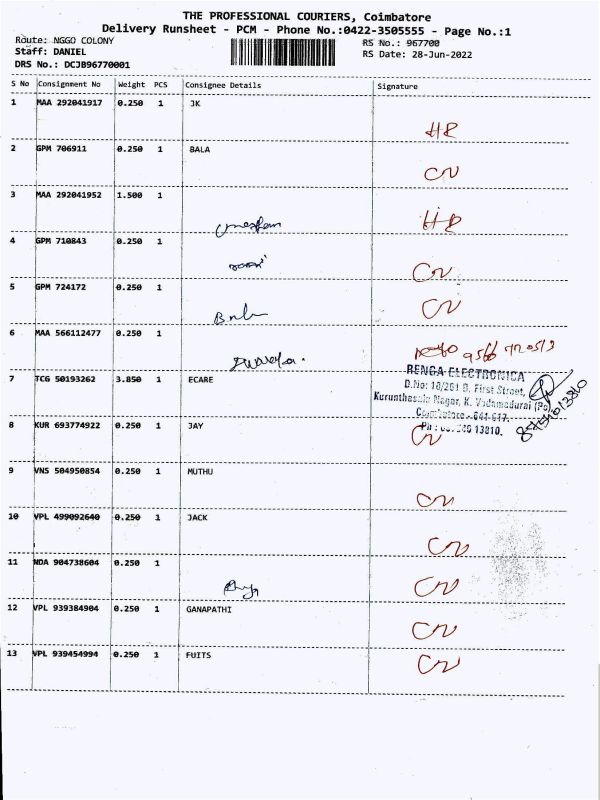 THE PROFESSIONAL COURIERS, Coimbatore
Delivery Runsheet - PCM - Phone No.:0422-3505555 - Page No.:1
Route: NGGO COLONY
Staff: DANIEL
DRS No.: DCJB96770001
RS No.: 967700
RS Date: 28-Jun-2022
S No Consignment No Weight PCS Consignee Details Signature
1 MAA 292041917 0.250 1 JK
HR
2 GPM 706911 0.250 1 BALA
CN
3 MAA 292041952 1.500 1
HR
4 GPM 710843 0.250 1
CN
5 GPM 724172 0.250 1
Bala CN
6 MAA 566112477 0.250 1
RENGA ELECTRONICA
7 TCG 50193262 3.850 1 ECARE
D.No: 18/261 B, First Street,
8 KUR 693774922 0.250 1 JAY
CN
9 VNS 504950854 0.250 1 MUTHU
CN
10 VPL 499092640 0.250 1 JACK
CN
11 NDA 904738604 0.250 1
CN
12 VPL 939384904 0.250 1 GANAPATHI
CN
13 VPL 939454994 0.250 1 FUITS
CN